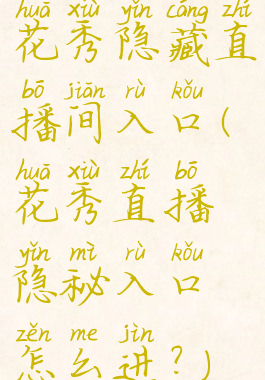 huā xiù yǐn cáng zhí
花秀隐藏直
bō jiān rù kǒu
播间入口(
huā xiù zhí bō
花秀直播
yǐn mì rù kǒu
隐秘入口
zěn me jìn
怎么进?)